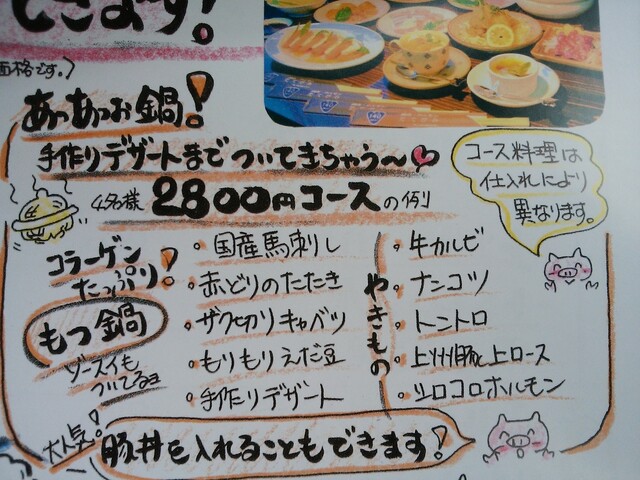 できます!
価格です。)
あつあつお鍋!
手作りデザートまでついてきちゃう〜
4名様 2800円コースの例
コース料理は
仕入れにより
異なります。
コラーゲン
たっぷり!
もつ鍋
ゾースイも
ついてるヨ
・国産馬刺し
・赤どりのたたき
・ザク切りキャベツ
・もりもりえだ豆
・手作りデザート
やきもの
・牛カルビ
・ナンコツ
・トントロ
・上州豚上ロース
・コロコロホルモン
大人気!
豚丼を入れることもできます!